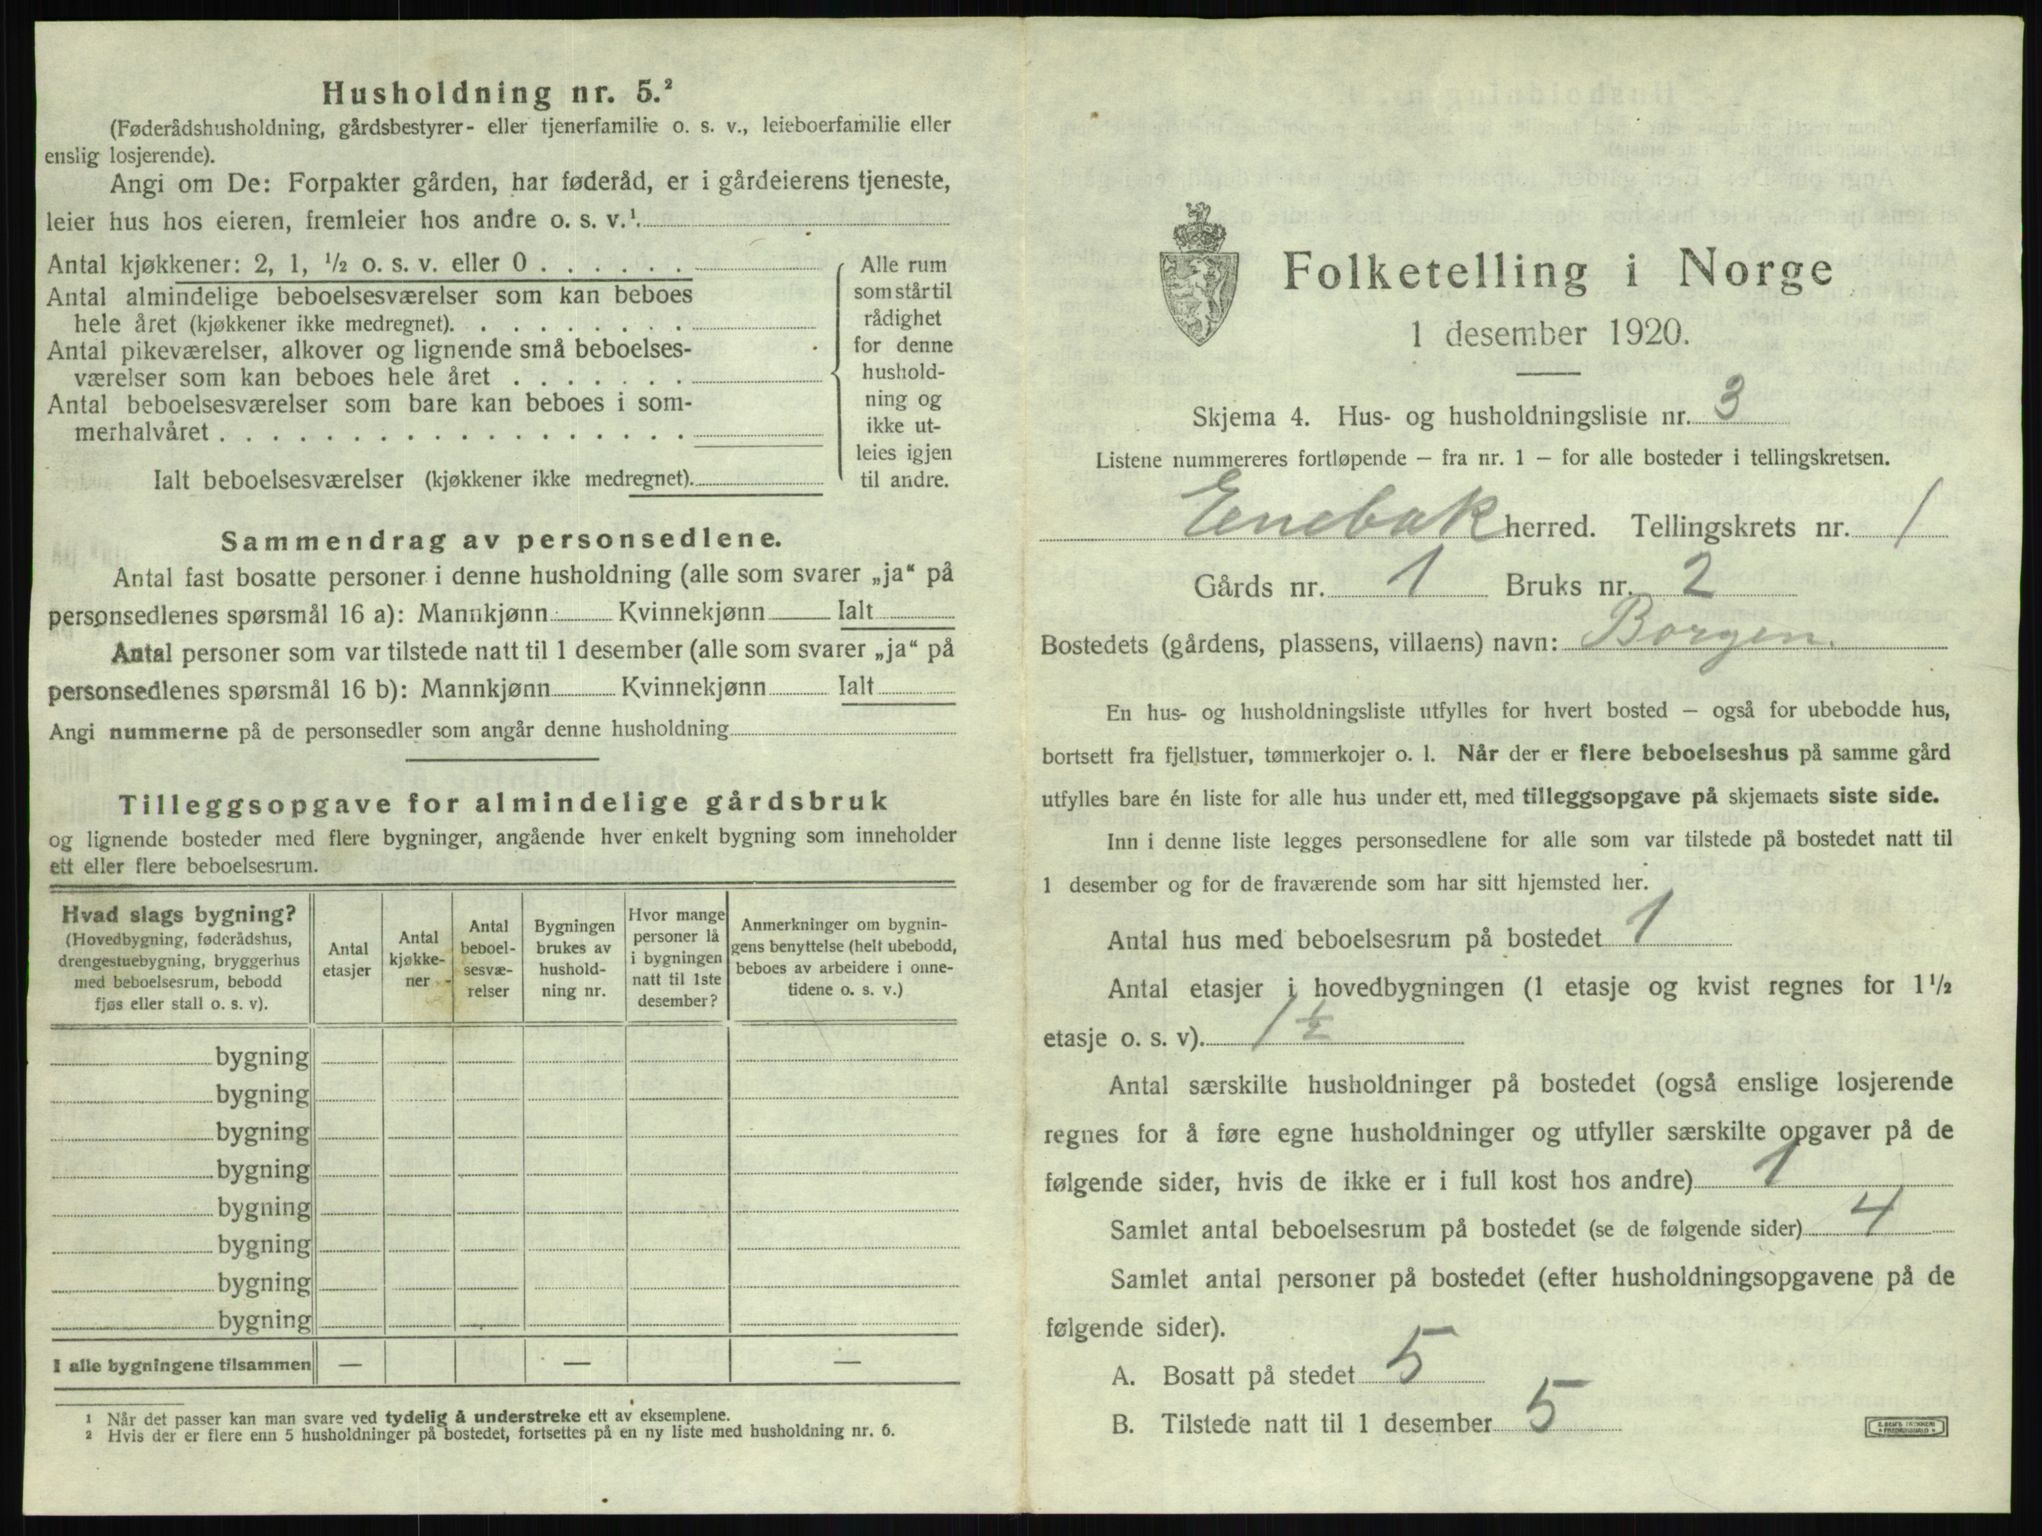 Husholdning nr. 5.²
(Føderådshusholdning, gårdsbestyrer- eller tjenerfamilie o. s. v., leieboerfamilie eller
enslig losjerende).
Angi om De: Forpakter gården, har føderåd, er i gårdeierens tjeneste,
leier hus hos eieren, fremleier hos andre o. s. v.¹.
Antal kjøkkener: 2, 1, ½ o. s. v. eller 0 . . . . . .
Antal almindelige beboelsesværelser som kan beboes
hele året (kjøkkener ikke medregnet). . . . . . . . .
Antal pikeværelser, alkover og lignende små beboelses-
værelser som kan beboes hele året . . . . . . .
Antal beboelsesværelser som bare kan beboes i som-
merhalvåret . . . . . . . . . . . . . . . . . .
Ialt beboelsesværelser (kjøkkener ikke medregnet).
Alle rum
som står til
rådighet
for denne
hushold-
ning og
ikke ut-
leies igjen
til andre.
Sammendrag av personsedlene.
Antal fast bosatte personer i denne husholdning (alle som svarer „ja“ på
personsedlenes spørsmål 16 a): Mannkjønn Kvinnekjønn Ialt
Antal personer som var tilstede natt til 1 desember (alle som svarer „ja“ på
personsedlenes spørsmål 16 b): Mannkjønn Kvinnekjønn Ialt
Angi nummerne på de personsedler som angår denne husholdning
Tilleggsopgave for almindelige gårdsbruk
og lignende bosteder med flere bygninger, angående hver enkelt bygning som inneholder
ett eller flere beboelsesrum.
Hvad slags bygning?
(Hovedbygning, føderådshus,
drengestuebygning, bryggerhus
med beboelsesrum, bebodd
fjøs eller stall o. s. v).
Antal
etasjer
Antal
kjøkke-
ner
Antal
beboel-
sesvæ-
relser
Bygningen
brukes av
hushold-
ning nr.
Hvor mange
personer lå
i bygningen
natt til 1ste
desember?
Anmerkninger om bygnin-
gens benyttelse (helt ubebodd,
beboes av arbeidere i onne-
tidene o. s. v.)
bygning
bygning
bygning
bygning
bygning
bygning
bygning
bygning
I alle bygningene tilsammen — — —
1 Når det passer kan man svare ved tydelig å understreke ett av eksemplene.
2 Hvis der er flere enn 5 husholdninger på bostedet, fortsettes på en ny liste med husholdning nr. 6.
Folketelling i Norge
1 desember 1920.
Skjema 4. Hus- og husholdningsliste nr. 3
Listene nummereres fortløpende – fra nr. 1 – for alle bosteder i tellingskretsen.
Enebak herred. Tellingskrets nr. 1
Gårds nr. 1 Bruks nr. 2
Bostedets (gårdens, plassens, villaens) navn: Borgen.
En hus- og husholdningsliste utfylles for hvert bosted – også for ubebodde hus,
bortsett fra fjellstuer, tømmerkojer o. l. Når der er flere beboelseshus på samme gård
utfylles bare én liste for alle hus under ett, med tilleggsopgave på skjemaets siste side.
Inn i denne liste legges personsedlene for alle som var tilstede på bostedet natt til
1 desember og for de fraværende som har sitt hjemsted her.
Antal hus med beboelsesrum på bostedet 1
Antal etasjer i hovedbygningen (1 etasje og kvist regnes for 1½
etasje o. s. v). 1½
Antal særskilte husholdninger på bostedet (også enslige losjerende
regnes for å føre egne husholdninger og utfyller særskilte opgaver på de
følgende sider, hvis de ikke er i full kost hos andre) 1
Samlet antal beboelsesrum på bostedet (se de følgende sider) 4
Samlet antal personer på bostedet (efter husholdningsopgavene på de
følgende sider).
A. Bosatt på stedet 5
B. Tilstede natt til 1 desember 5